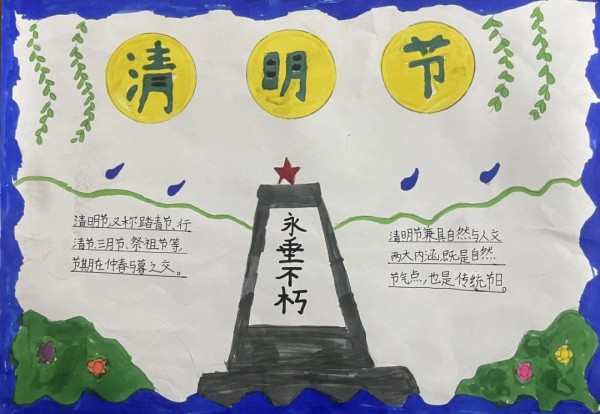 清明节
永垂不朽
清明节,又称踏青节、行
清节、三月节、祭祖节等,
节期在仲春与暮之交。
清明节兼具自然与人文
两大内涵,既是自然
节气点,也是传统节日。